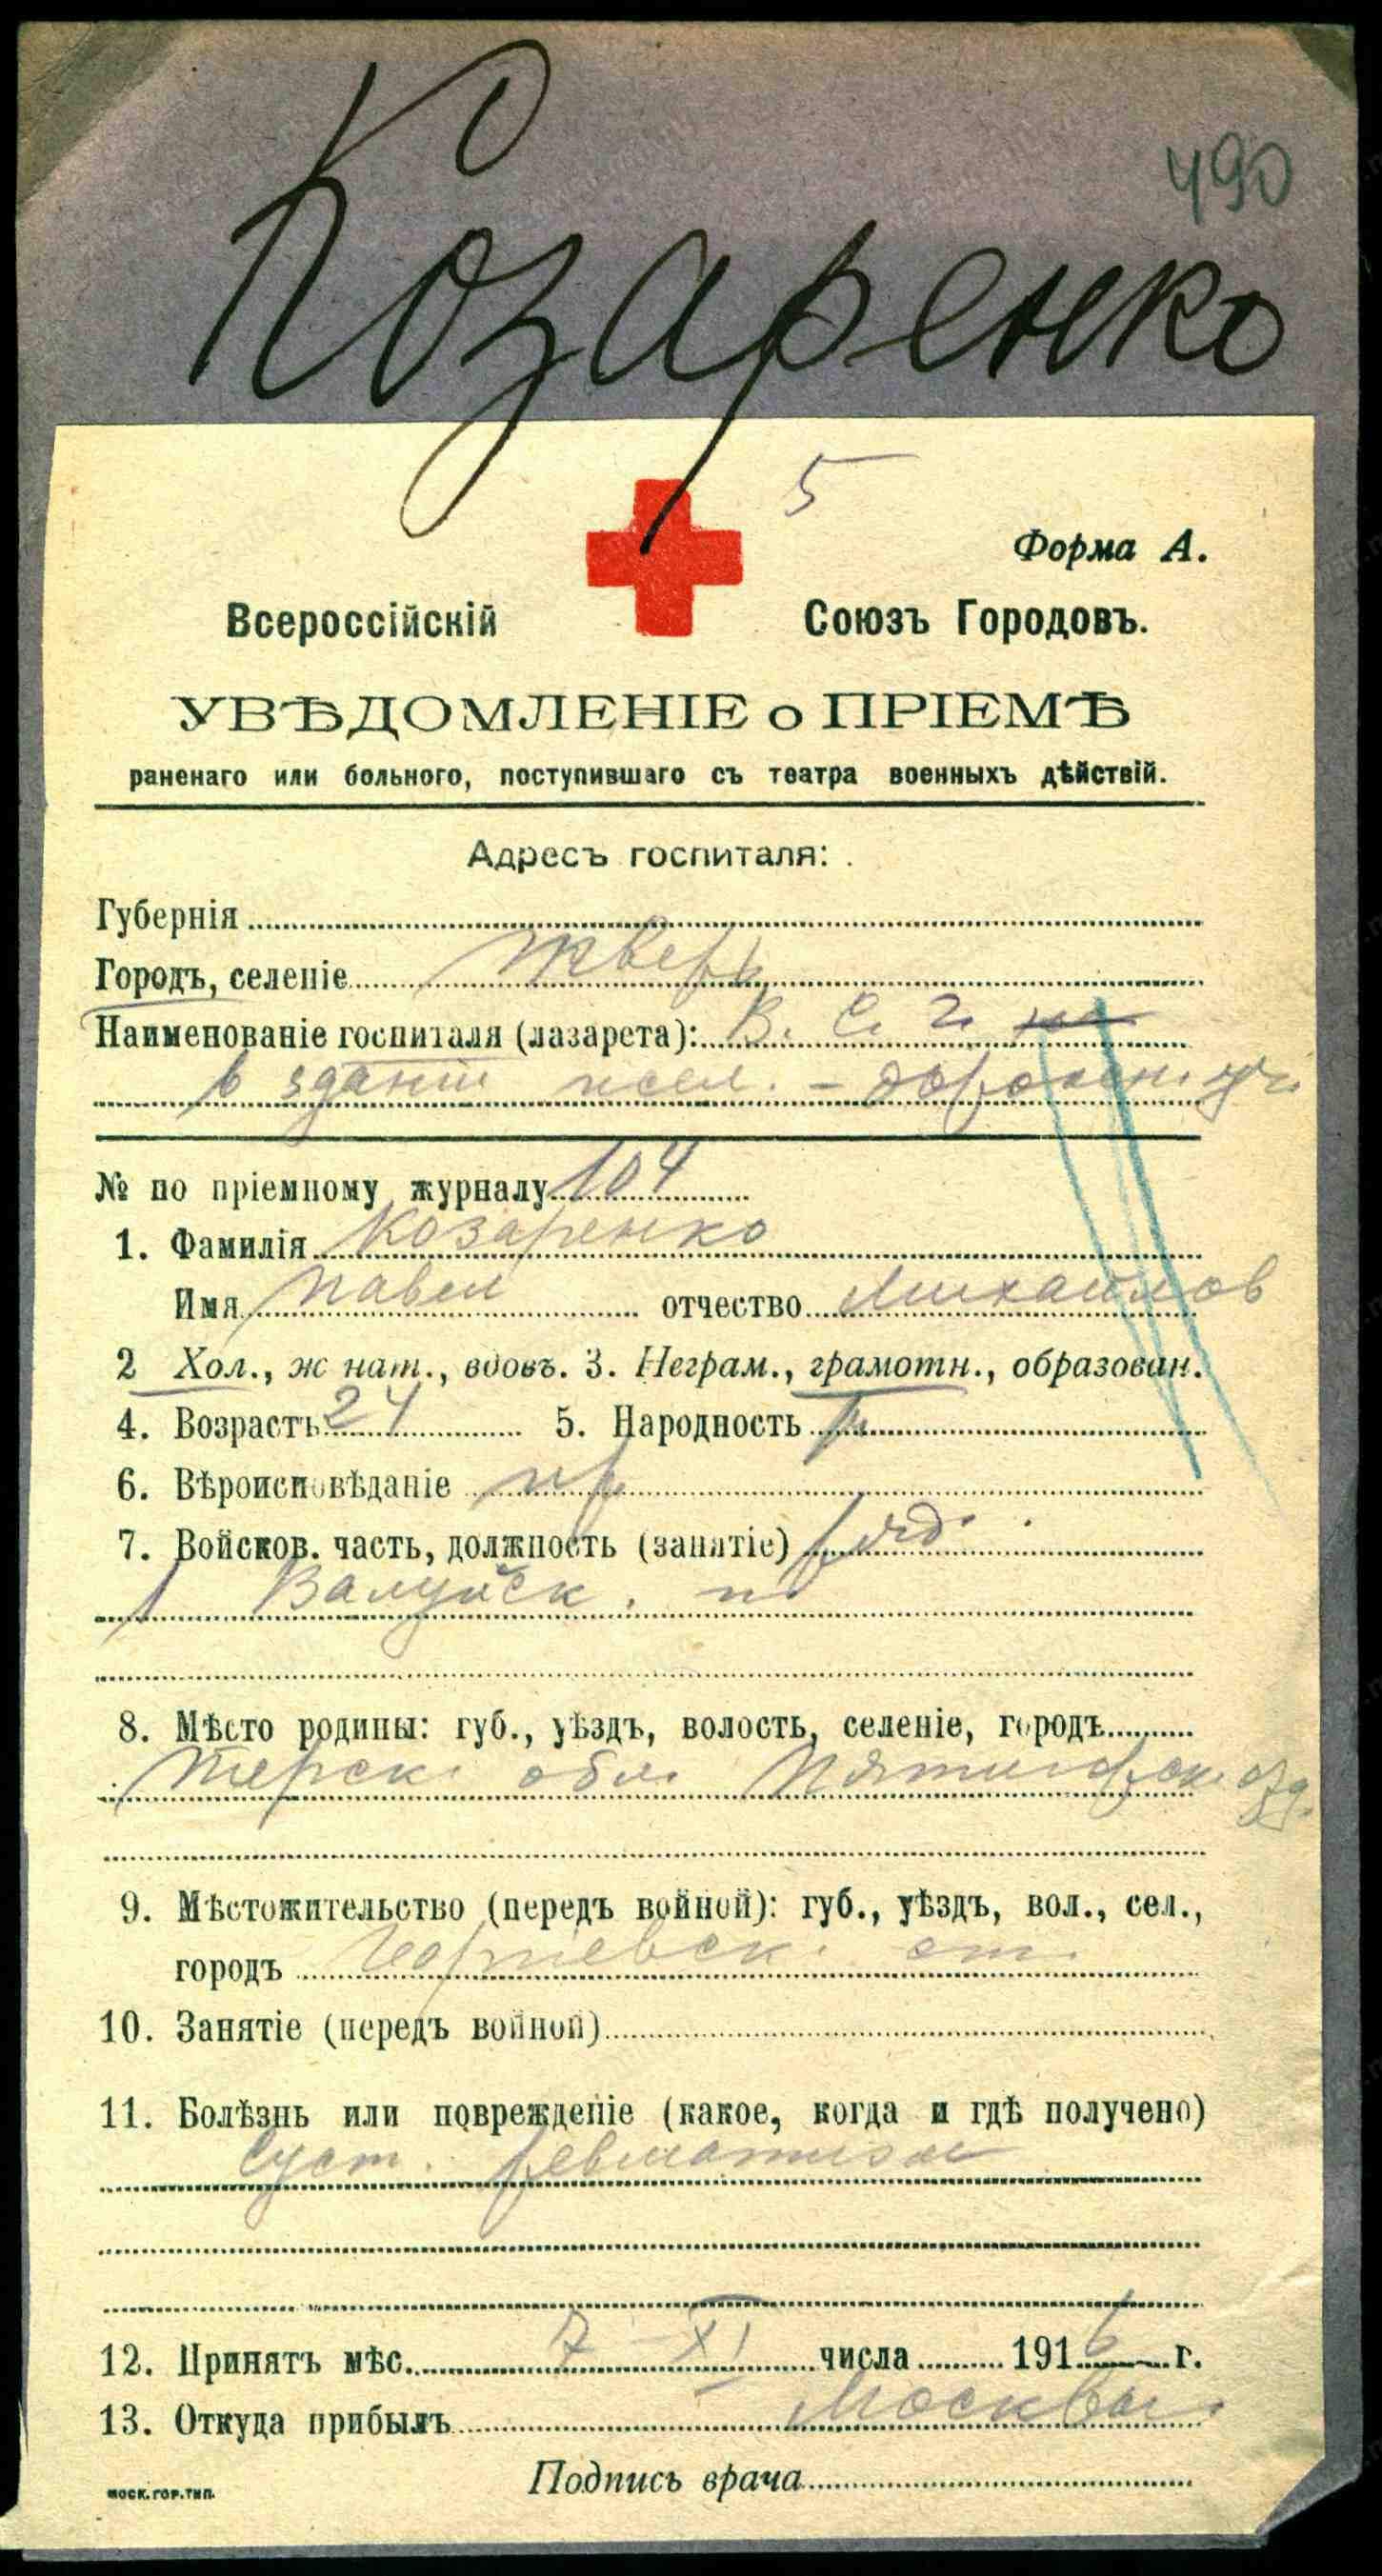 490
Козаренко
5
Форма А.
Всероссійскій Союзъ Городовъ.
УВѢДОМЛЕНІЕ о ПРІЕМѢ
раненаго или больного, поступившаго съ театра военныхъ дѣйствій.
Адресъ госпиталя:
Губернія
Городъ, селеніе Тверь
Наименованіе госпиталя (лазарета): В. С. Г.
в здании жел. - дорожн. уч.
№ по пріемному журналу 104
1. Фамилія Козаренко
Имя Павел отчество Михайлов
2 Хол., женат., вдовъ. 3. Неграм., грамотн., образован.
4. Возрастъ 24 5. Народность
6. Вѣроисповѣданіе пр
7. Войсков. часть, должность (занятіе) ряд.
1 Валуйск. п
8. Мѣсто родины: губ., уѣздъ, волость, селеніе, городъ
Терск. обл. Пятигорск. отд.
9. Мѣстожительство (передъ войной): губ., уѣздъ, вол., сел.,
городъ Георгіевск. ст.
10. Занятіе (передъ войной)
11. Болѣзнь или поврежденіе (какое, когда и гдѣ получено)
Суст. ревматизм
12. Принятъ мѣс. 7 XI числа 1916 г.
13. Откуда прибылъ Москвы
Подпись врача
МОСК.ГОР.ТИП.